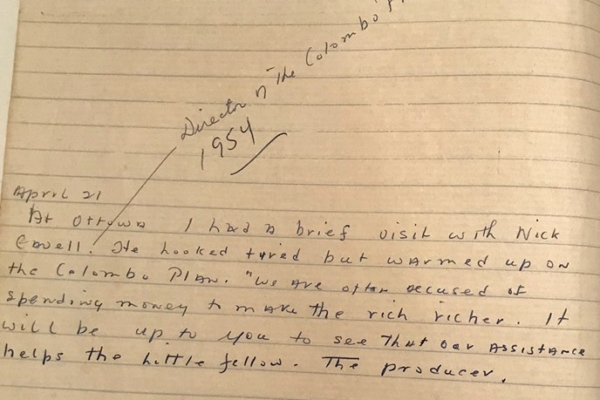 Director of The Colombo
1954
April 21
At Ottawa I had a brief visit with Nick
He looked tired but warmed up on
the Colombo Plan. "We are often accused of
spending money to make the rich richer. It
will be up to you to see that our assistance
helps the little fellow. The producer.